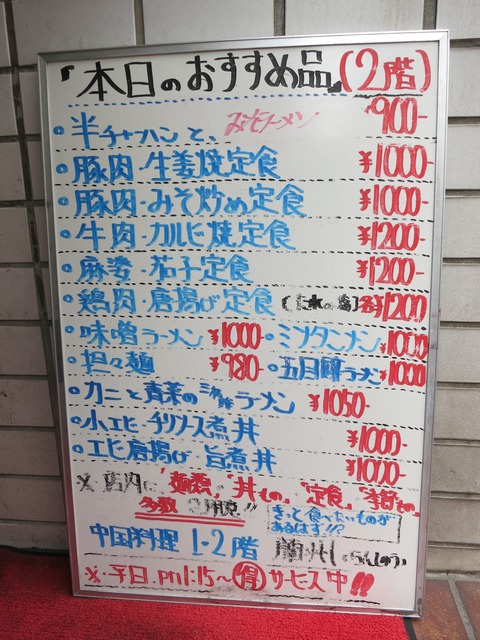 『本日のおすすめ品』(2階)
・半チャーハンと、みそラーメン 900-
・豚肉・生姜焼定食 ¥1000-
・豚肉・みそ炒め定食 ¥1000-
・牛肉・カルビ焼定食 ¥1200-
・麻婆・茄子定食 ¥1200-
・鶏肉・唐揚げ定食 ¥1200
・味噌ラーメン ¥1000- ・ミソタンメン ¥1000
・担々麺 ¥980- ・五目ラーメン ¥1000
・カニと青菜のラーメン ¥1050-
・小エビ・チリソース煮丼 ¥1000-
・エビ唐揚げ旨煮丼 ¥1000-
※店内に"麺類"，"丼もの"，"定食"，"季節もの"，
多数 ご用意!!
きっと食べたいものが
あるはず!!?
中国料理 1・2階 蘭州(らんしゅう)
※平日.pm1:15～㊒サービス中!!